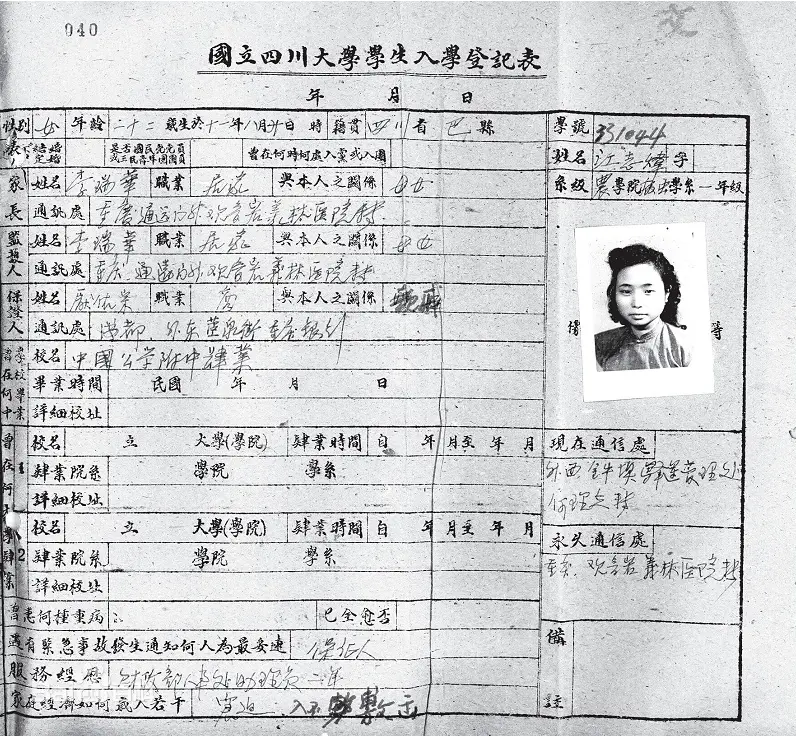 040
國立四川大學學生入學登記表
年 月 日
性別 女 年齡 二十二 歲生於十一年八月廿日 時 籍貫 四川省 巴縣
學號 331044
是否國民党党員或三民青年團團員 曾在何時何處入黨或入團
姓名 江 字
家長 姓名 李瑞華 職業 與本人之關係 母女
系級 農學院 學系一年級
通訊處 重慶通遠門外观音岩義林医院轉
監護人 姓名 李瑞華 職業 與本人之關係 母女
通訊處 重庆通遠門外观音岩義林医院轉
保證人 姓名 職業 與本人之關係
通訊處 成都 外东
校名 中國公学附中肄業
畢業時間 民國 年 月 日
詳細校址
校名 立 大學(學院) 肄業時間 自 年 月至 年 月
現在通信處
1 肄業院系 學院 學系
外西
詳細校址
何理之轉
校名 立 大學(學院) 肄業時間 自 年 月至 年 月
永久通信處
2 肄業院系 學院 學系
重庆 观音岩義林医院轉
詳細校址
曾患何種重病 已全愈否
遇有緊急事故發生通知何人為最妥速 保証人
備註
服務經歷 財政部人事处助理員一年
家庭經濟如何歲入若干